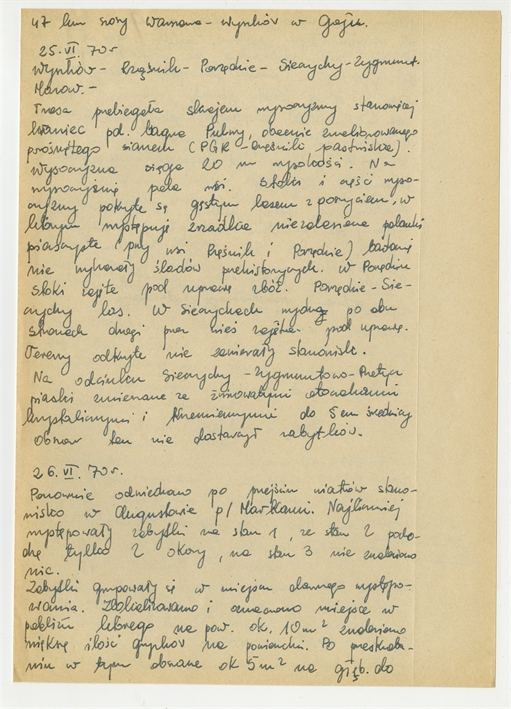 47 km szosy Warszawa - Wyszków w Gaju.
25.VI.70r
Wyszków - Rząśnik - Porządzie - Sieczychy - Zygmunt.
- 
Trasa przebiegała skrajem wysoczyzny stanowiącej
kraniec pd. bagna Pulwy, obecnie zmeliorowanego
porośniętego sianem (PGR pastwiska).
Wysoczyzna sięga 20 m wysokości. Na
wysoczyźnie pola wsi. Stoki i część wyso-
czyzny pokryte są gęstym lasem z poszyciem, w
którym występują z rzadka niezalesione polanki
piaszczyste przy wsi Rząśnik i Porządzie) badania
nie wykazały śladów prehistorycznych. W Porządziu
stoki zajęte pod uprawę zbóż. Porządzie - Sie-
czychy las. W Sieczychach wydmy po obu
stronach drogi przez wieś zajęte pod uprawę.
Tereny odkryte nie zawierały stanowisk.
Na odcinku Sieczychy - Zygmuntowo - Pretycz
piaski zmieszane ze żwirowatymi otoczakami
krystalicznymi i krzemiennymi do 5 cm średnicy
Obszar ten nie dostarczył zabytków.
26.VI.70r.
Ponownie odwiedzano po przejściu wiatrów stano-
wisko w Augustowie p/ Markami. Najliczniej
występowały zabytki na stan 1, ze stan 2 pocho-
dzą tylko 2 okazy, na stan 3 nie znaleziono
nic.
Zabytki grupowały się w miejscu dawnego występo-
wania. Zlokalizowano i oznaczono miejsce w
pobliżu którego na pow. ok. 10 m² znaleziono
większą ilość na powierzchni. Po przeskroba-
niu w tym obszarze ok 5 m² na głęb. do